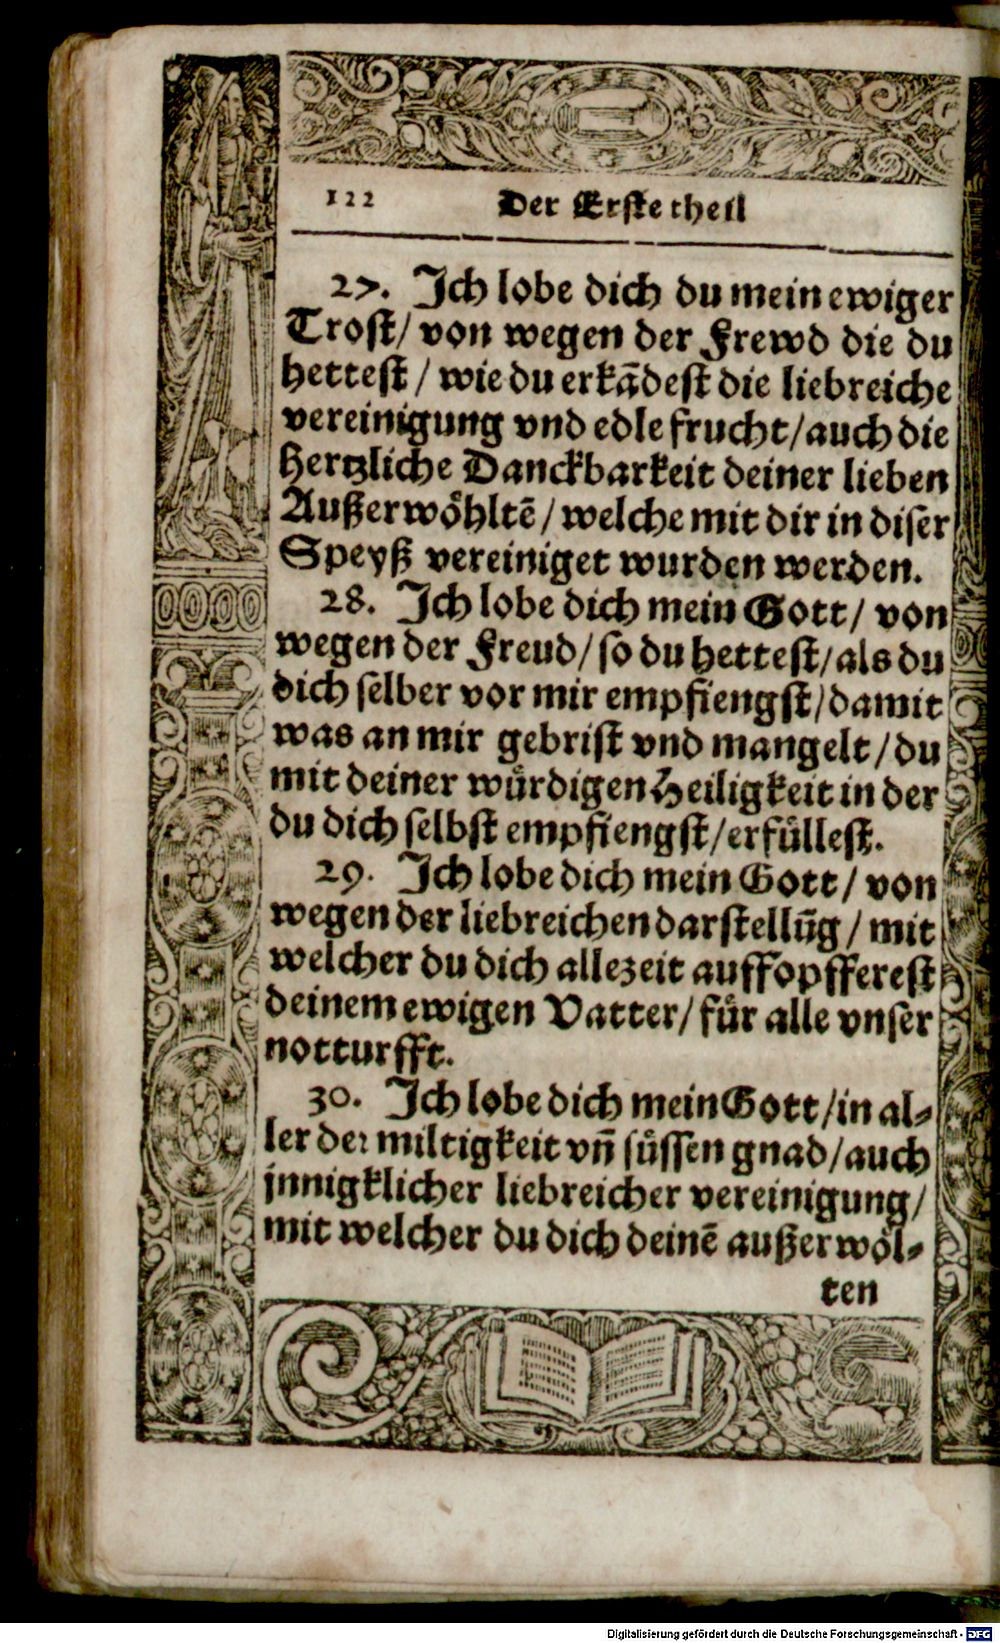 122 Der Erste theil
27. Ich lobe dich du mein ewiger
Trost/ von wegen der Frewd die du
hettest / wie du erkādest die liebreiche
vereinigung vnd edle frucht/auch die
hertzliche Danckbarkeit deiner lieben
Außerwoͤhltē/ welche mit dir in diser
Speyß vereiniget wurden werden.
28. Ich lobe dich mein Gott/ von
wegen der Freud/so du hettest/als du
dich selber vor mir empfiengst/damit
was an mir gebrist vnd mangelt/du
mit deiner wuͤrdigen Heiligkeit in der
du dich selbst empfiengst/erfuͤllest.
29. Ich lobe dich mein Gott/ von
wegen der liebreichen darstellūg/ mit
welcher du dich allezeit auffopfferest
deinem ewigen Vatter/ fuͤr alle vnser
notturfft.
30. Ich lobe dich mein Gott/in al⸗
ler der miltigkeit vn̄ suͤssen gnad/auch
jnnigklicher liebreicher vereinigung/
mit welcher du dich deinē außerwoͤl⸗
ten
Digitalisierung gefördert durch die Deutsche Forschungsgemeinschaft - DFG